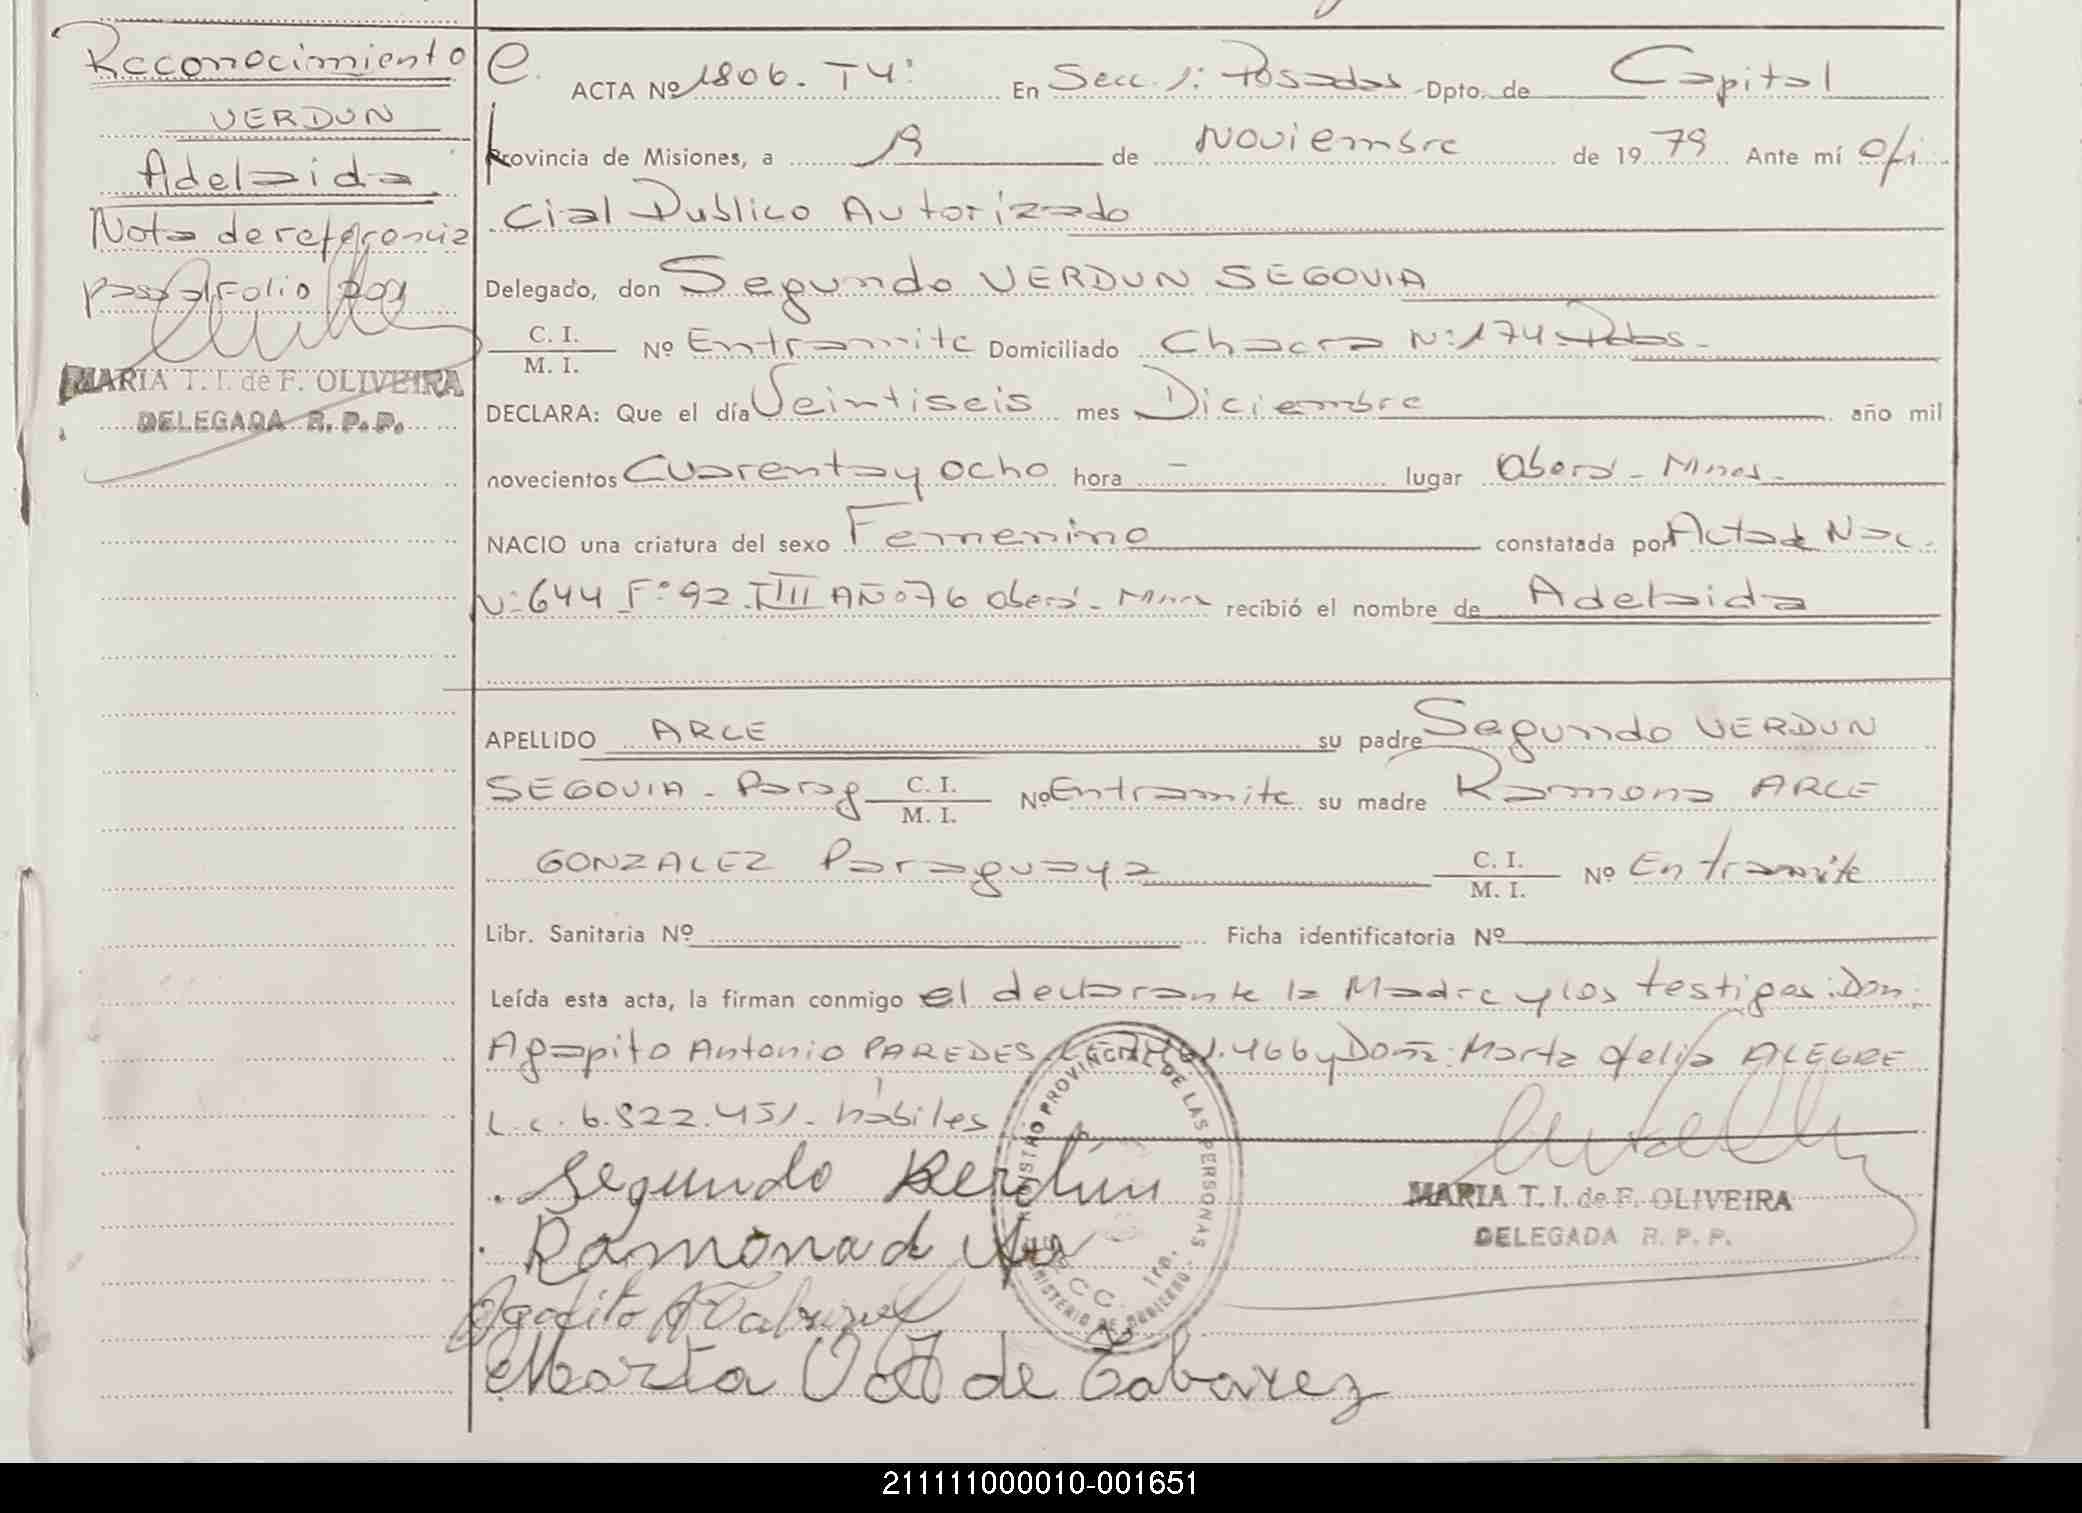 Reconocimiento
VERDUN
Adelaida
Nota de referencia
pasa al Folio 201
MARIA T. I. de F. OLIVEIRA
DELEGADA R. P. P.
ACTA Nº 1806. T4: En Secc. 1: Posadas Dpto. de Capital
Provincia de Misiones, a 19 de Noviembre de 1979 Ante mí Ofi
cial Publico Autorizado
Delegado, don Segundo VERDUN SEGOVIA
C. I.
M. I. Nº Entramite Domiciliado Chacra N:174-Pdas-
DECLARA: Que el día Veintiseis mes Diciembre año mil
novecientos Cuarenta y ocho hora - lugar Oberá - Mnes.-
NACIO una criatura del sexo Femenino constatada por Acta de Nac.
N:644 F:92 TIII AÑO 76 Oberá - Mnes recibió el nombre de Adelaida
APELLIDO ARCE su padre Segundo VERDUN
SEGOVIA - Parag C. I.
M. I. Nº Entramite su madre Ramona ARCE
GONZALEZ Paraguaya C. I.
M. I. Nº En tramite
Libr. Sanitaria Nº Ficha identificatoria Nº
Leída esta acta, la firman conmigo el declarante la Madre y los testigos: Don
Agapito Antonio PAREDES 466 y Doña: Marta Ofelia ALEGRE
L.c. 6.822.451- hábiles
Segundo Verdún
Ramona de
Marta O A de Tabarez
REGISTRO PROVINCIAL DE LAS PERSONAS
MINISTERIO DE GOBIERNO
MARIA T. I. de F. OLIVEIRA
DELEGADA R. P. P.
211111000010-001651